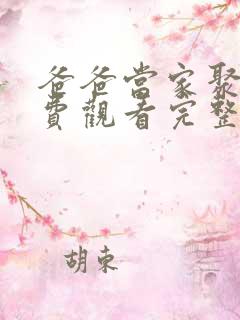 爸爸當家聚
費觀看完整
胡東